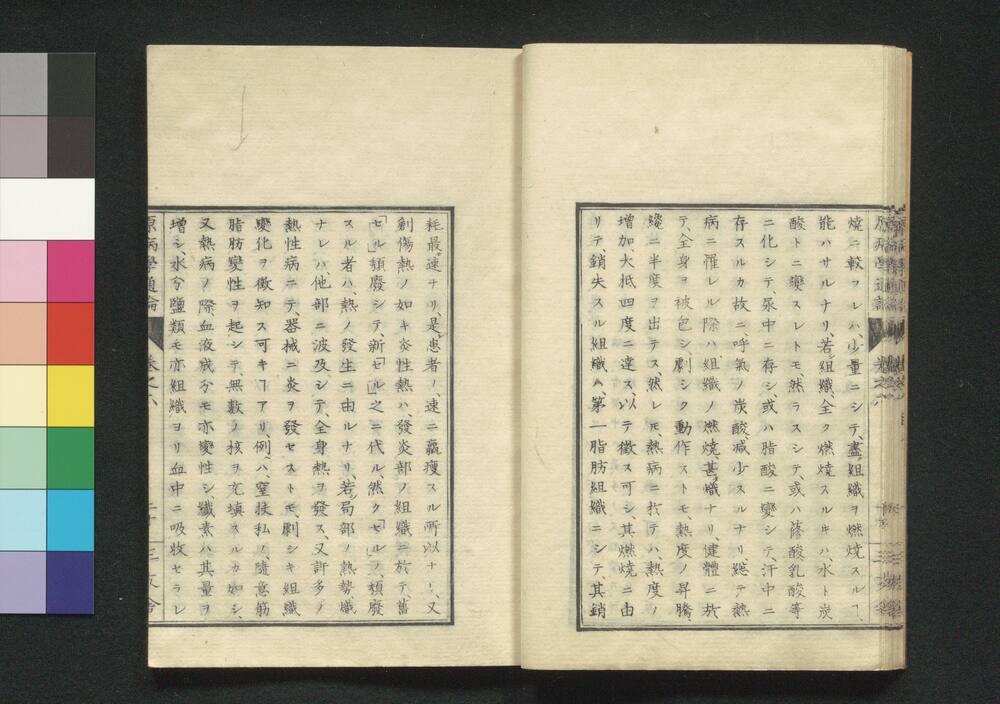 燒ニ較フレハ少量ニシテ、盡組織ヲ燃燒スルヿ、
能ハサルナリ、若組織、全ク燃燒スルキハ、水ト炭
酸トニ變スレトモ、然ラスシテ、或ハ蓚酸乳酸等
ニ化シテ、尿中ニ存シ、或ハ脂酸ニ變シテ、汗中ニ
存スルカ故ニ、呼氣ノ炭酸、减少スルナリ總テ熱
病ニ罹レル際ハ組織ノ燃燒、甚熾ナリ、健體ニ於
テ、全身ヲ被包シ、劇シク動作ストモ熱度ノ昇騰、
纔ニ半度ヲ出テス、然レモ、熱病ニ於テハ、熱度ノ
增加、大抵四度ニ達ス、以テ徴ス可シ其燃燒ニ由
リテ、銷失スル組織ハ、第一脂肪組織ニシテ、其銷
耗最速ナリ、是患者ノ、速ニ羸瘦スル所以ナリ、又
創傷熱ノ如キ炎性熱ハ、發炎部ノ組織ニ於テ、舊
「セル」頽廢シテ、新「セル」之ニ代ル、然ク「セル」ノ頽廢
スル者ハ、熱ノ發生ニ由ルナリ、若局部ノ熱勢、熾
ナレハ、他部ニ波及シテ、全身熱ヲ發ス、又許多ノ
熱性病ニテ、器械ニ炎ヲ發セストモ、劇シキ組織
變化ヲ徴知ス可キヿアリ、例ハ窒扶私ノ、隨意筋
脂肪變性ヲ起シテ、無數ノ核ヲ充填スルカ如シ、
又熱病ノ際、血液成分モ亦變性シ、纖素ハ其量ヲ
增シ、水分鹽類モ亦組織ヨリ血中ニ吸收セラレ
原病學通論 卷之六